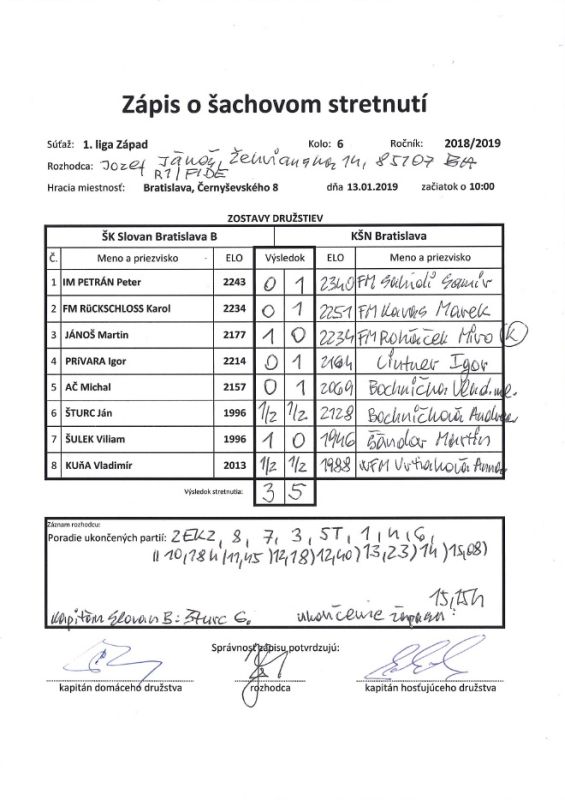 Zápis o šachovom stretnutí
Súťaž: 1. liga Západ Kolo: 6 Ročník: 2018/2019
Rozhodca: Jozef Jánoš, 14, 85107 BA
R1/FIDE
Hracia miestnosť: Bratislava, Černyševského 8 dňa 13.01.2019 začiatok o 10:00
ZOSTAVY DRUŽSTIEV
ŠK Slovan Bratislava B KŠN Bratislava
Č. Meno a priezvisko ELO Výsledok ELO Meno a priezvisko
1 IM PETRÁN Peter 2243 0 1 2340 FM
2 FM RüCKSCHLOSS Karol 2234 0 1 2251 FM Kavas Marek
3 JÁNOŠ Martin 2177 1 0 2234 FM Roháček Miro (K)
4 PRíVARA Igor 2214 0 1 2164 Cintner Igor
5 AČ Michal 2157 0 1 2069
6 ŠTURC Ján 1996 1/2 1/2 2128 Bochničková Andrea
7 ŠULEK Viliam 1996 1 0 1946 Martin
8 KUňA Vladimír 2013 1/2 1/2 1988 WFM Vrtiaková Anna
Výsledok stretnutia: 3 5
Záznam rozhodcu:
Poradie ukončených partií: 2EKZ, 8, 7, 3, 5T, 1, 4, 6,
10,18h 11,45) 12,18) 12,40) 13,23) 14) 15,08)
15,15h
Kapitán Slovan B: Šturc G. ukončenie zápasu:
Správnosť zápisu potvrdzujú:
kapitán domáceho družstva rozhodca kapitán hosťujúceho družstva